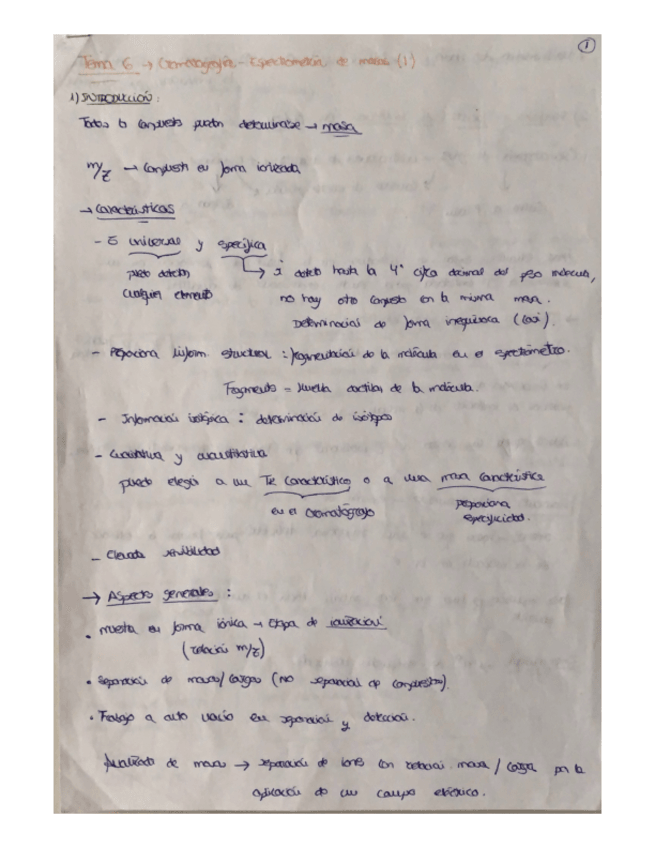 1
Tema 6 → Cromatografía - Espectrometría de masas (1)
1) INTRODUCCIÓN:
Todos los compuestos pueden determinarse → masa
m/z → Compuesto en forma ionizada
→ Características
- Es universal y específica
puedo detectar
cualquier elemento
si detecto hasta la 4ª cifra decimal del peso molecular,
no hay otro compuesto con la misma masa.
Determinación de forma inequívoca (casi).
- Proporciona inform. estructural: fragmentación de la molécula en el espectrómetro.
Fragmento = huella dactilar de la molécula.
- Información isotópica: determinación de isótopos
- Cualitativa y cuantitativa
puedo elegir a un Tr característico o a una masa característica
en el cromatógrafo
proporciona
especificidad.
- Elevada sensibilidad
→ Aspectos generales:
• muestra en forma iónica → Etapa de ionización
(relación m/z)
• Separación de masas/cargas (no separación de compuestos).
• Trabajo a alto vacío en separación y detección.
Analizador de masas → separación de iones con relación masa/carga por la
aplicación de un campo eléctrico.